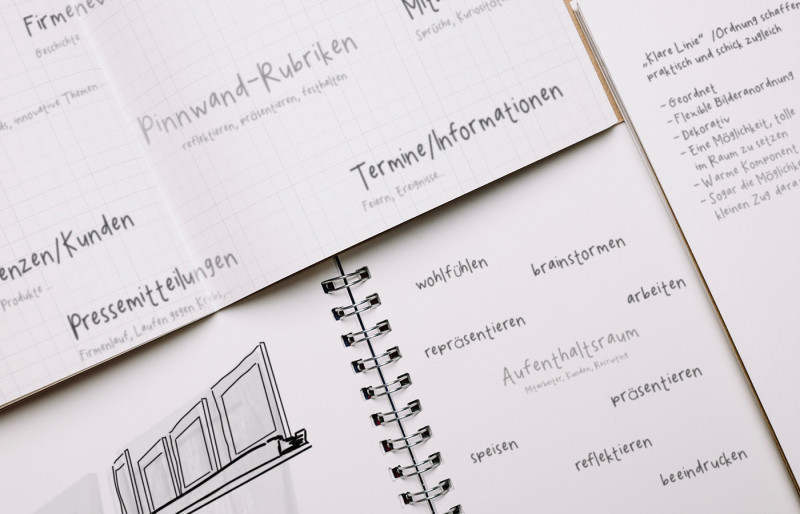 Geschichte
Sprüche, Kuriositäten
innovative Themen...
Pinnwand-Rubriken
reflektieren, präsentieren, festhalten
Termine/Informationen
Feiern, Ereignisse...
enzen/Kunden
Produkte...
Pressemitteilungen
Firmenlauf, Laufen gegen Krebs,...
„Klare Linie“ /Ordnung schaffen
praktisch und schick zugleich
-Geordnet
-Flexible Bilderanordnung
-Dekorativ
-Eine Möglichkeit, tolle
im Raum zu setzen
-Warme Komponent
-Sogar die Möglichk
kleinen Zug dara
wohlfühlen
brainstormen
arbeiten
repräsentieren
Aufenthaltsraum
Mitarbeiter, Kunden, Recruiting
präsentieren
speisen
reflektieren
beeindrucken